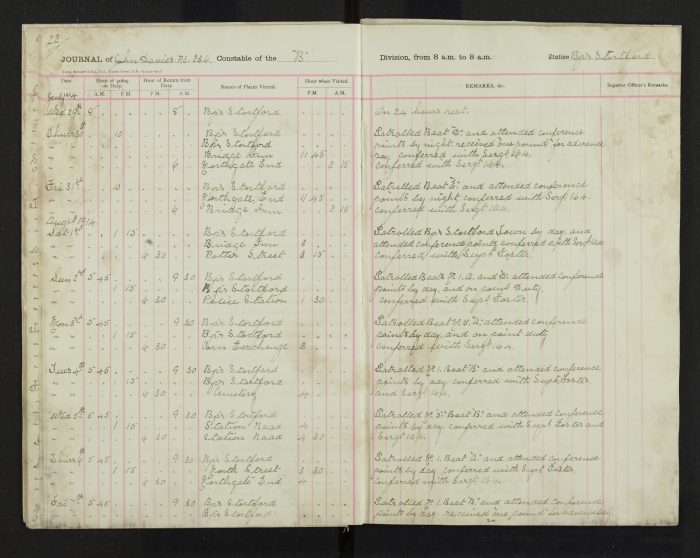 22
JOURNAL of John Davies P.C. 236 Constable of the "B" Division, from 6 a.m. to 8 a.m. Station Bp's Stortford
Date Hour of going on Duty. Hour of Return from Duty. Names of Places Visited. Hour when Visited. REMARKS, &c. Superior Officer's Remarks
A.M. P.M. A.M. P.M. P.M. A.M.
Wed 29th 8 8 Bp's Stortford On 24 hours rest.
Thurs 30th 10 Bp's Stortford Patrolled Beat "D" and attended conference
Bp's Stortford points by night. received one pound for advance
Bridge Inn 11 45 pay conferred with Sergt. 164.
6 Northgate End 2 15 conferred with Sergt. 164.
Fri 31st 10 Bp's Stortford Patrolled Beat "E" and attended conference
Northgate End 11 45 points by night conferred with Sergt. 164
6 Bridge Inn 2 15 conferred with Sergt. 164.
August 1914
Sat 1st 1 15 Bp's Stortford Patrolled Bp's Stortford Town by day and
Bridge Inn 3 attended conference points conferred with Sergt. 164
6 30 Potter Street 3 15 conferred with Supt Foster.
Sun 2nd 5 45 9 30 Bp's Stortford Patrolled Beats No. 1. A. and attended conference
1 15 Bp's Stortford points by day, and on point Duty.
6 30 Police Station 1 30 conferred with Supt Foster.
Mon 3rd 5 45 9 30 Bp's Stortford Patrolled Beat No. 5. "A" attended conference
1 15 Bp's Stortford points by day, and on point duty
4 30 Corn Exchange 3 conferred with Sergt. 164.
Tues 4th 5 45 9 30 Bp's Stortford Patrolled No. 1. Beat "B" and attended conference
15 Bp's Stortford points by day. conferred with Supt Foster,
6 30 Cemetery 4 and Sergt. 164.
Wed 5th 5 45 9 30 Bp's Stortford Patrolled No. 5. Beat "B" and attended conference
1 15 Station Road 4 points by day, conferred with Supt Foster and
4 30 Station Road 4 30 Sergt. 164.
Thurs 6th 5 45 9 30 Bp's Stortford Patrolled No. 1. Beat "A" and attended conference
1 15 South Street 3 30 points by day. conferred with Supt Foster,
6 30 Northgate End 4 conferred with Sergt. 164.
Fri 7th 5 45 9 30 Bp's Stortford Patrolled No. 1. Beat "B" and attended conference
Bp's Stortford points by day. received one pound in advance pay